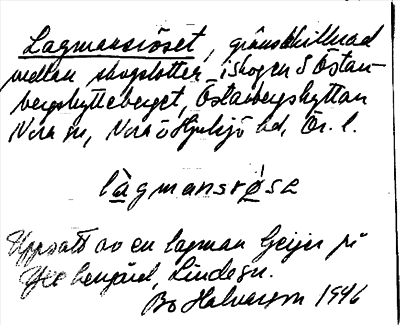 Lagmansröset, gränsskillnad
mellan skogslotter i skogen S Östan-
bergshytteberget, Östanbergshyttan
Nora sn, Nora o Hjulsjö hd, Ör. l.
làgmansrø̀sa
Uppsatt av en lagman Geijer på
bergård, Lindesn.
Bo Halvarson 1946